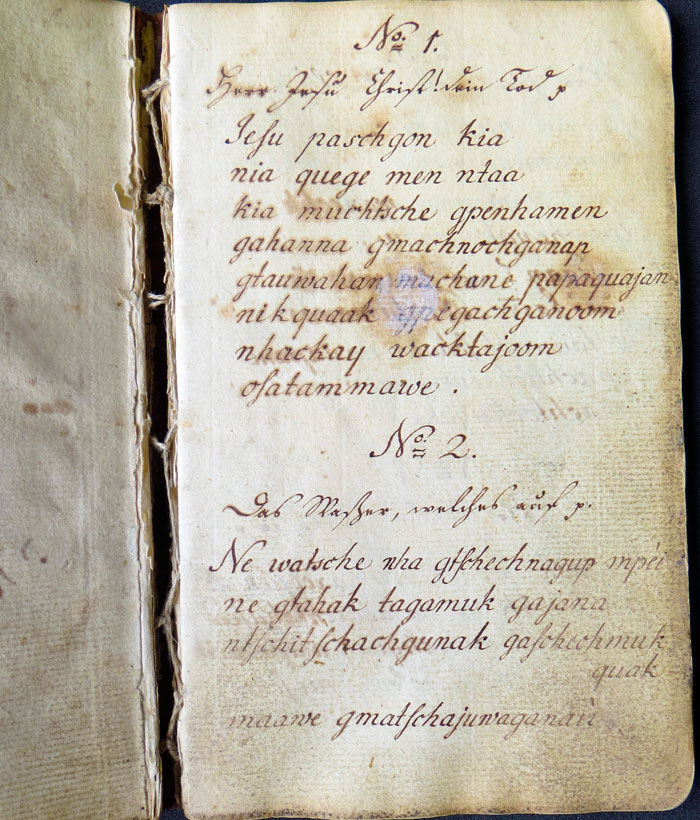 No. 1.
Herr Jesu Christ! dein Tod p
Iesu paschgon kia
nia quege men ntaa
kia muchtsche gpenhamen
gahanna gmachnochganap
gtauwahan machane papaquajan
nik quaak gpegachganoom
nhackay wacktajoom
osatammawe.
No. 2.
Das Waßer, welches auf p.
Ne watsche nha gtschechnagup mpei
ne gtahak tagamuk gajana
ntschitschachgunak gaschechmuk
quak
maawe gmatschajuwaganau